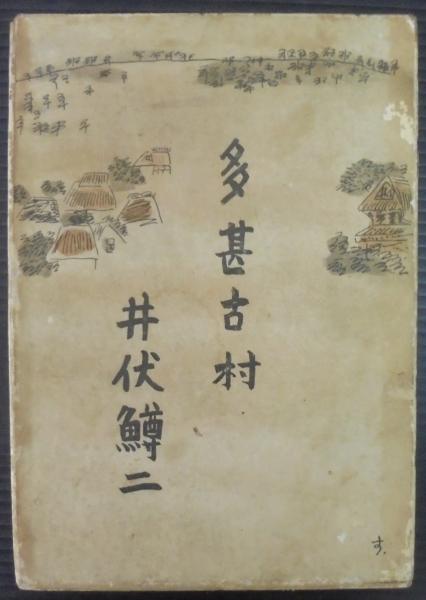 多甚古村
井伏鱒二
す.